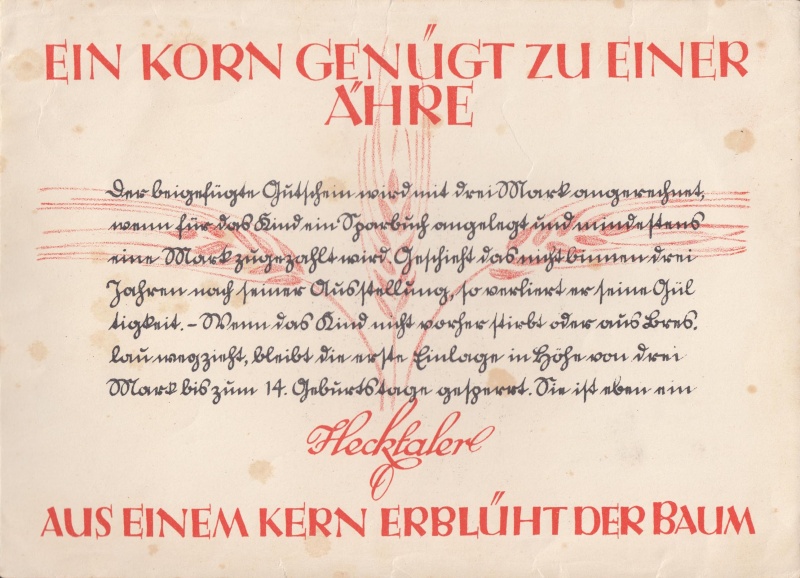 EIN KORN GENÜGT ZU EINER
ÄHRE
Der beigefügte Gutschein wird mit drei Mark angerechnet,
wenn für das Kind ein Sparbuch angelegt und mindestens
eine Mark zugezahlt wird. Geschieht das nicht binnen drei
Jahren nach seiner Ausstellung, so verliert er seine Gül
tigkeit. – Wenn das Kind nicht vorher stirbt oder aus Bres.
lau wegzieht, bleibt die erste Einlage in Höhe von drei
Mark bis zum 14. Geburtstage gesperrt. Sie ist eben ein
Hecktaler
AUS EINEM KERN ERBLÜHT DER BAUM